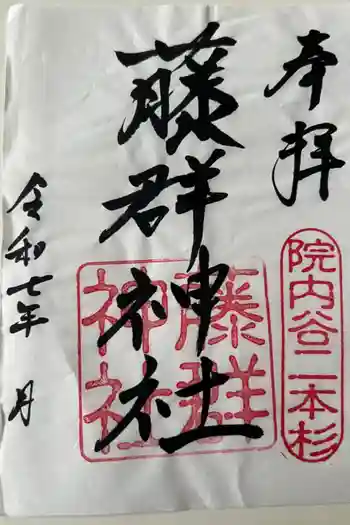 奉拝
院内谷二本杉
藤群神社
藤群
神社
令和七年 月